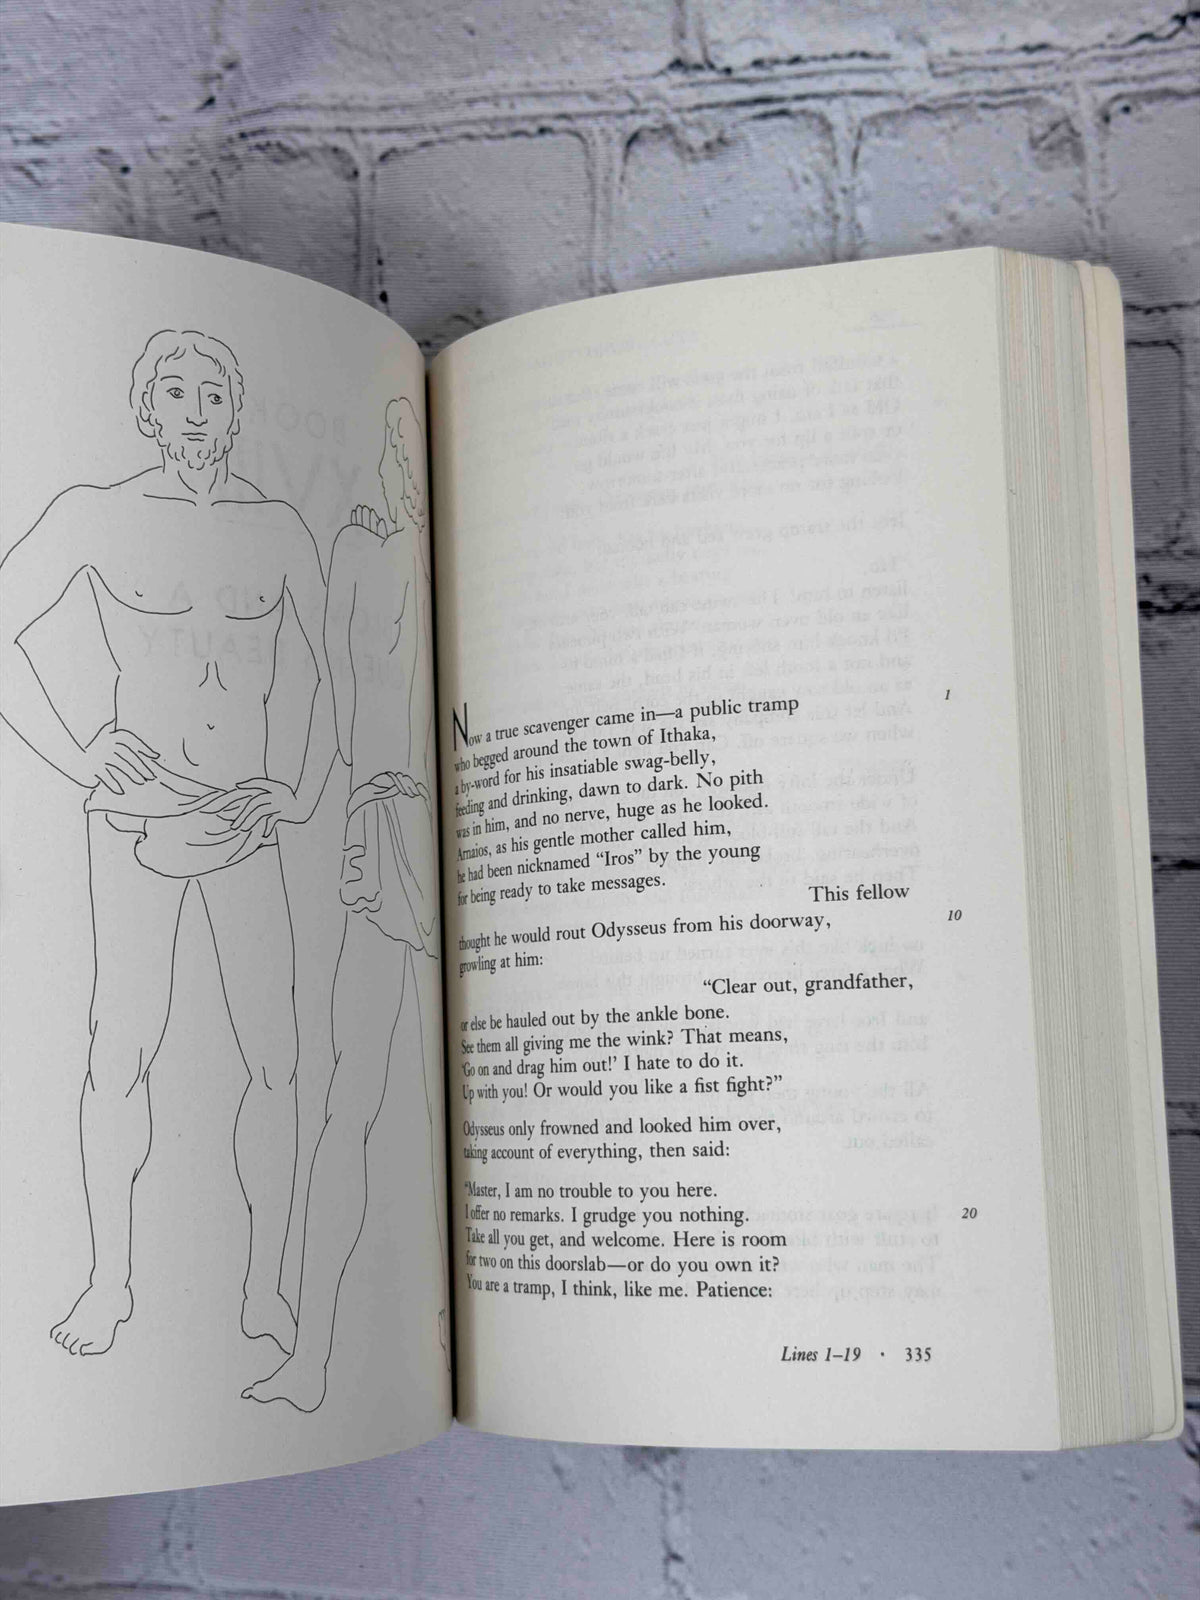 Now a true scavenger came in—a public tramp
1
who begged around the town of Ithaka,
a by-word for his insatiable swag-belly,
feeding and drinking, dawn to dark. No pith
was in him, and no nerve, huge as he looked.
Arnaios, as his gentle mother called him,
he had been nicknamed “Iros” by the young
for being ready to take messages.
This fellow
thought he would rout Odysseus from his doorway,
10
growling at him:
“Clear out, grandfather,
or else be hauled out by the ankle bone.
See them all giving me the wink? That means,
‘Go on and drag him out!’ I hate to do it.
Up with you! Or would you like a fist fight?”
Odysseus only frowned and looked him over,
taking account of everything, then said:
“Master, I am no trouble to you here.
I offer no remarks. I grudge you nothing.
20
Take all you get, and welcome. Here is room
for two on this doorslab—or do you own it?
You are a tramp, I think, like me. Patience:
Lines 1–19 · 335